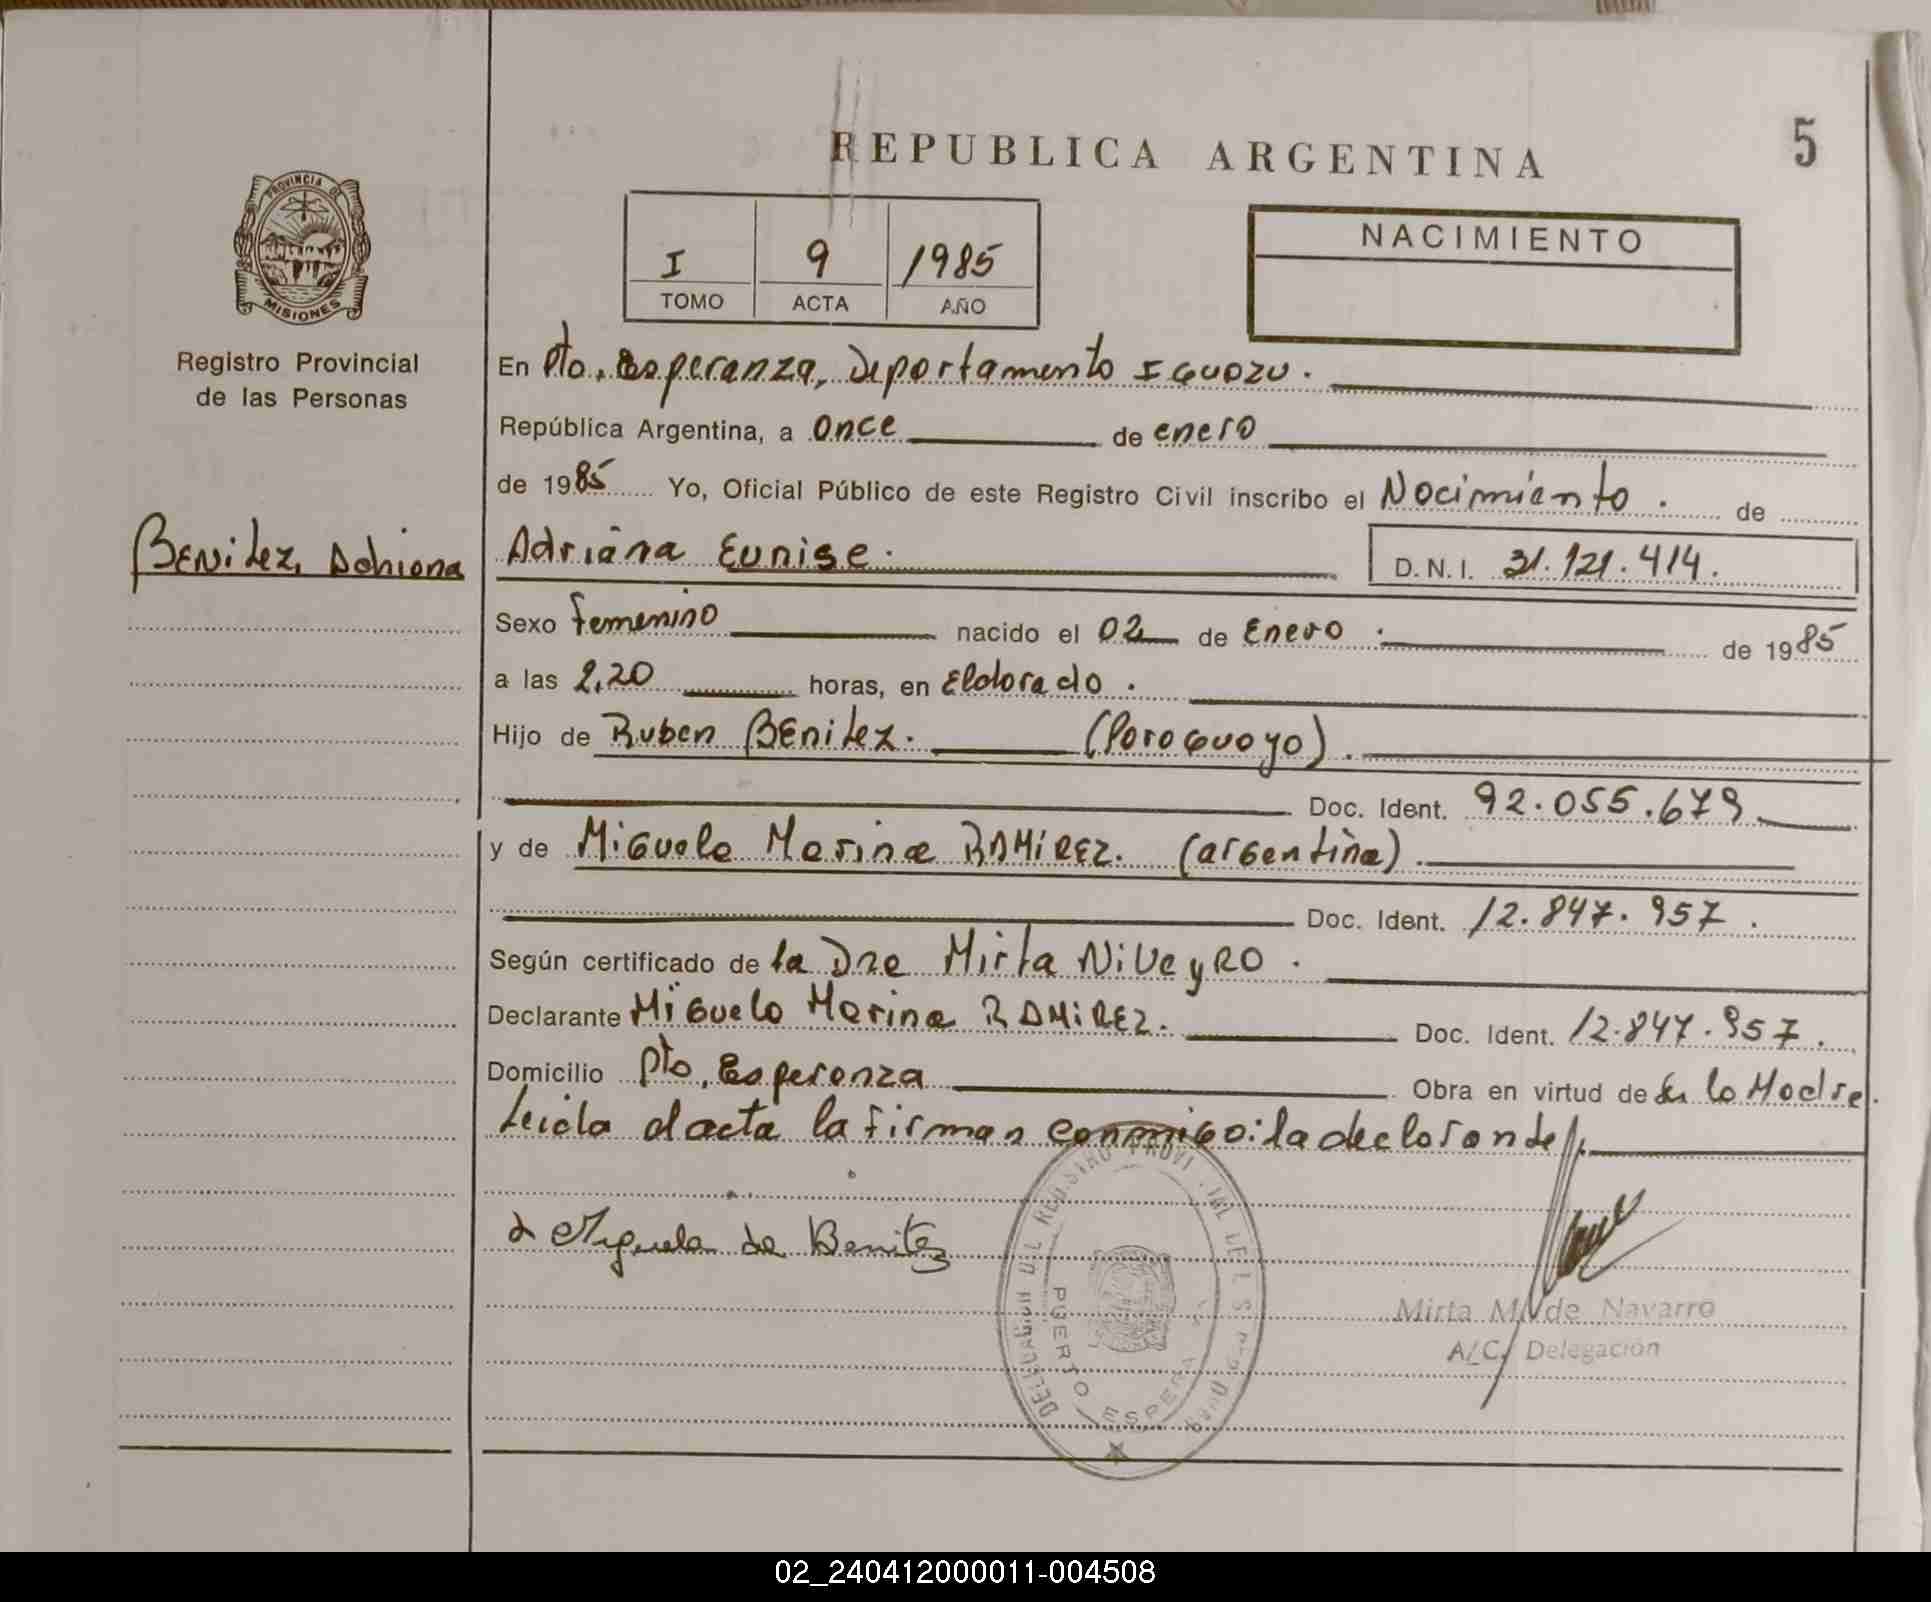 REPUBLICA ARGENTINA
5
PROVINCIA DE
MISIONES
Registro Provincial
de las Personas
I 9 1985
TOMO ACTA AÑO
NACIMIENTO
En Pto. Esperanza, Departamento IGUAZU.
República Argentina, a once de enero
de 1985 Yo, Oficial Público de este Registro Civil inscribo el Nacimiento. de
BENitez, Adriana
Adriana Eunise.
D.N.I. 31.121.414.
Sexo femenino nacido el 02 de Enero. de 1985
a las 2,20 horas, en Eldorado.
Hijo de Ruben BENitez. (Paraguayo).
Doc. Ident. 92.055.679
y de Miguela Marina RAMIREZ. (argentina).
Doc. Ident. 12.847.957.
Según certificado de la Dra Mirta NiVeyRO.
Declarante Miguela Marina RAMIREZ. Doc. Ident. 12.847.957.
Domicilio Pto. Esperanza Obra en virtud de la Madre.
Leida el acta la firman conmigo: la declarante
Miguela de Benitez
DELEGACION DEL REGISTRO PROVINCIAL DE L S
PUERTO ESPERA
Mirta M. de Navarro
A/C. Delegación
02_240412000011-004508